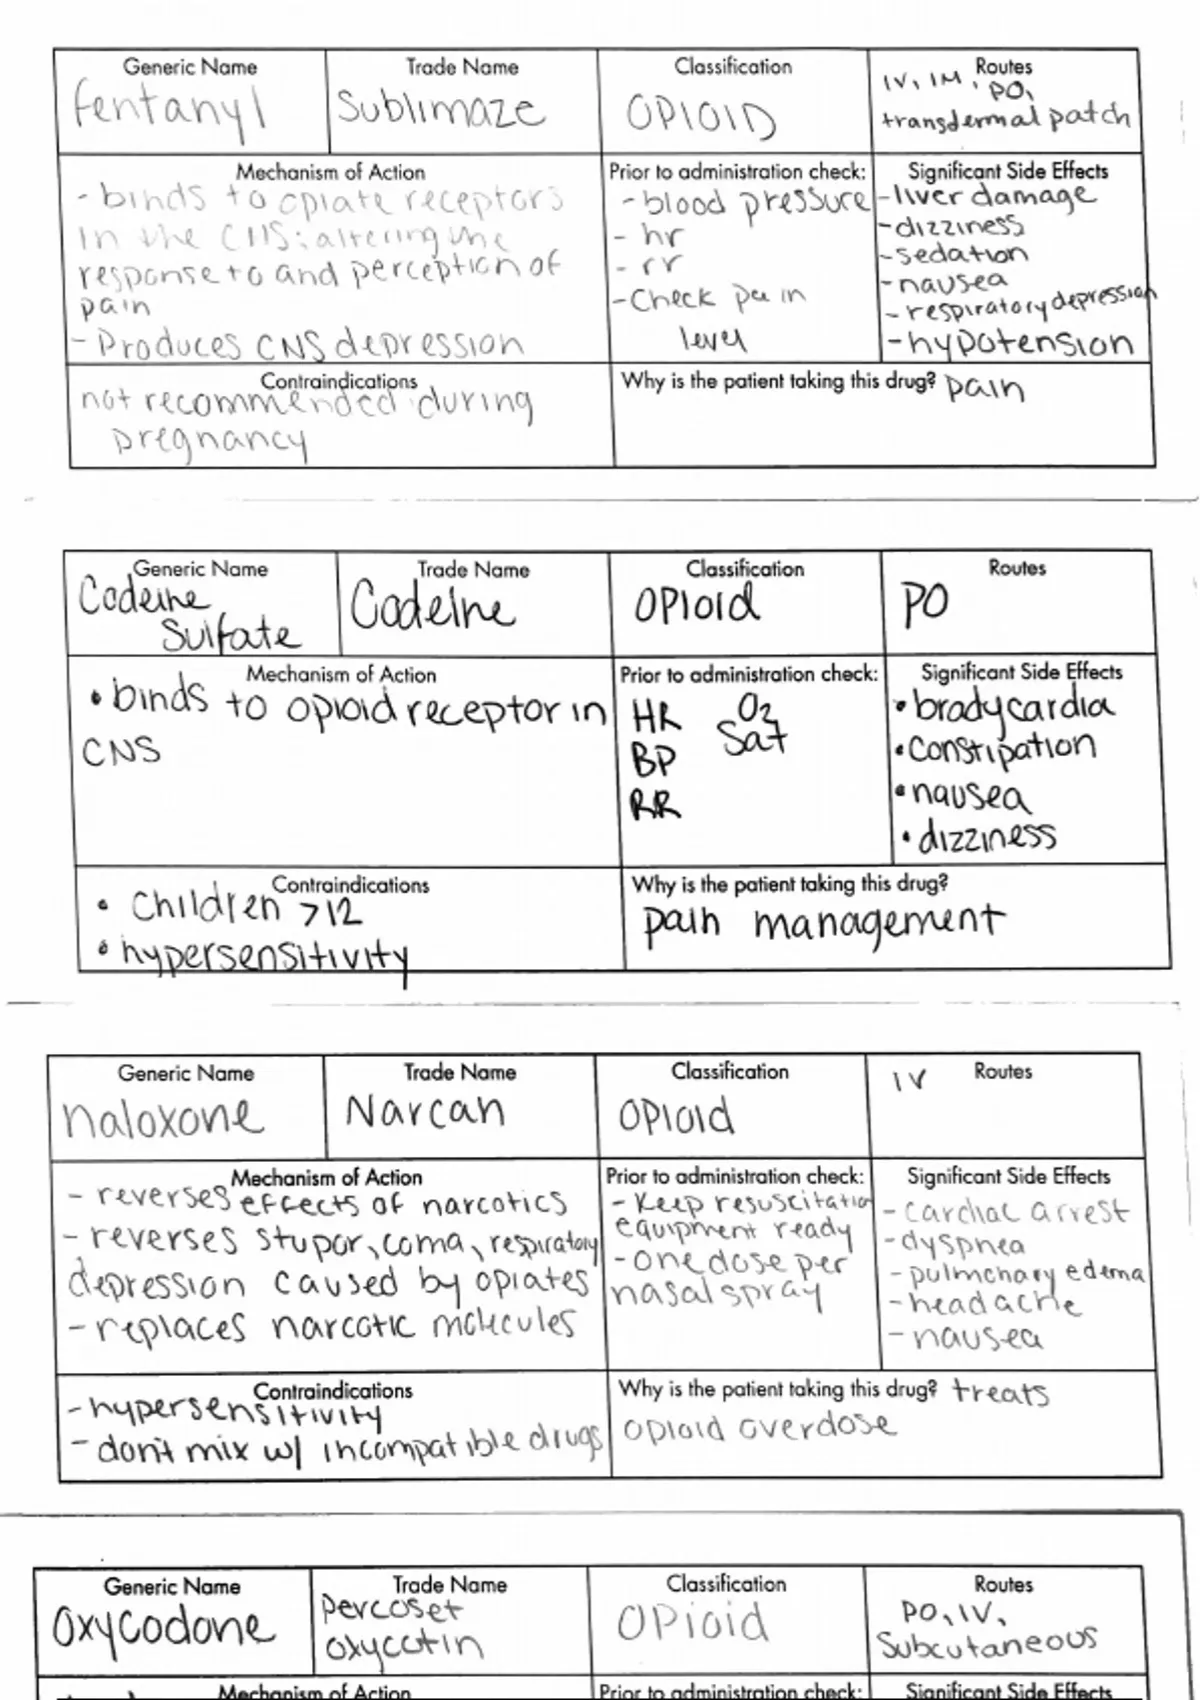 Generic Name
fentanyl
Trade Name
Sublimaze
Classification
OPIOID
Routes
IV, IM, PO,
transdermal patch
Mechanism of Action
- binds to opiate receptors
in the CNS; altering the
response to and perception of
pain
- Produces CNS depression
Prior to administration check:
- blood pressure
- hr
- rr
- Check pain
level
Significant Side Effects
- liver damage
- dizziness
- sedation
- nausea
- respiratory depression
- hypotension
Contraindications
not recommended during
pregnancy
Why is the patient taking this drug? pain
Generic Name
Codeine
Sulfate
Trade Name
Codeine
Classification
OPIOID
Routes
PO
Mechanism of Action
• binds to opioid receptor in
CNS
Prior to administration check:
HR O2
Sat
BP
RR
Significant Side Effects
• bradycardia
• constipation
• nausea
• dizziness
Contraindications
• Children >12
• hypersensitivity
Why is the patient taking this drug?
pain management
Generic Name
naloxone
Trade Name
Narcan
Classification
OPIOID
Routes
IV
Mechanism of Action
- reverses effects of narcotics
- reverses stupor, coma, respiratory
depression caused by opiates
- replaces narcotic molecules
Prior to administration check:
- Keep resuscitation
equipment ready
- one dose per
nasal spray
Significant Side Effects
- cardiac arrest
- dyspnea
- pulmonary edema
- headache
- nausea
Contraindications
- hypersensitivity
- don't mix w/ incompatible drugs
Why is the patient taking this drug? treats
opioid overdose
Generic Name
Oxycodone
Trade Name
percoset
oxycotin
Classification
OPioid
Routes
PO, IV,
Subcutaneous
Mechanism of Action
Prior to administration check:
Significant Side Effects